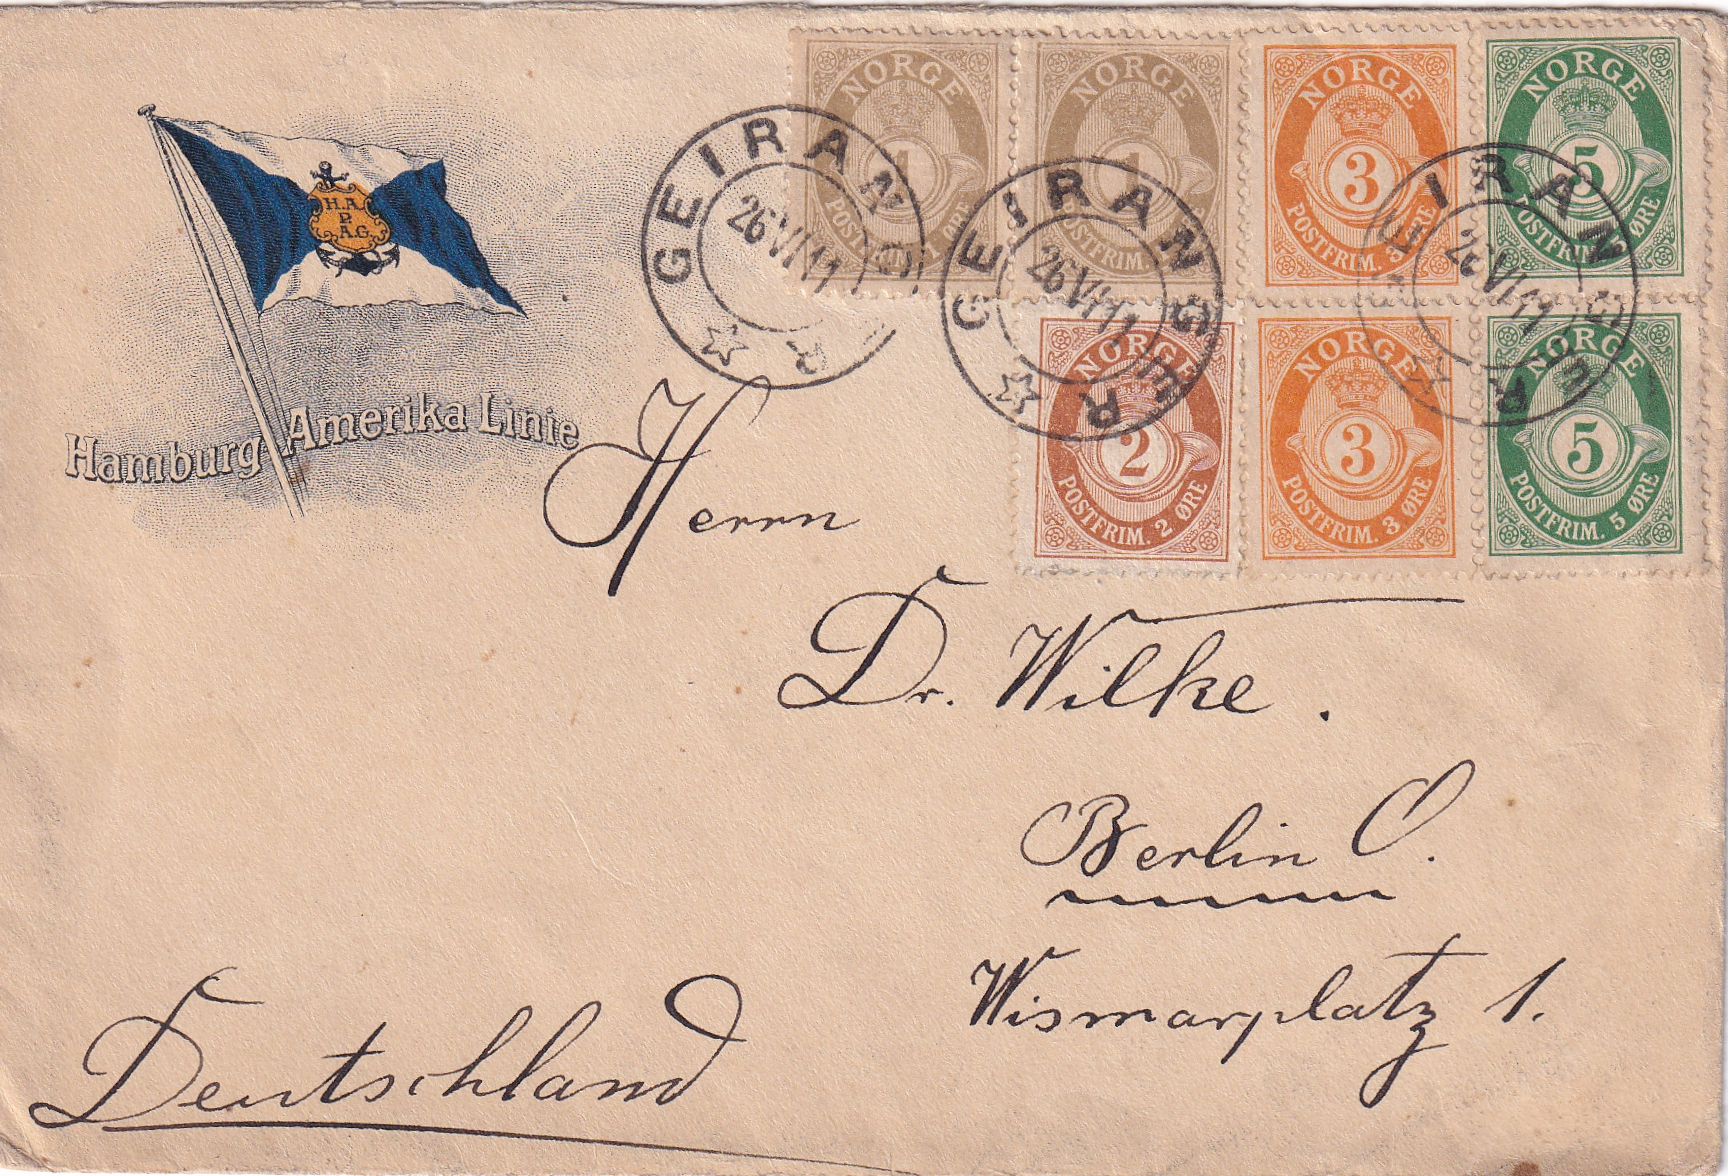 NORGE
1
POSTFRIM. 1 ØRE
NORGE
1
POSTFRIM. 1 ØRE
NORGE
3
POSTFRIM. 3 ØRE
NORGE
5
POSTFRIM. 5 ØRE
NORGE
2
POSTFRIM. 2 ØRE
NORGE
3
POSTFRIM. 3 ØRE
NORGE
5
POSTFRIM. 5 ØRE
GEIRANGER
26 VI 11
GEIRANGER
26 VI 11
GEIRANGER
26 VI 11
H. A.
P.
A.G.
Hamburg Amerika Linie
Herrn
Dr. Wilke.
Berlin O.
Wismarplatz 1.
Deutschland